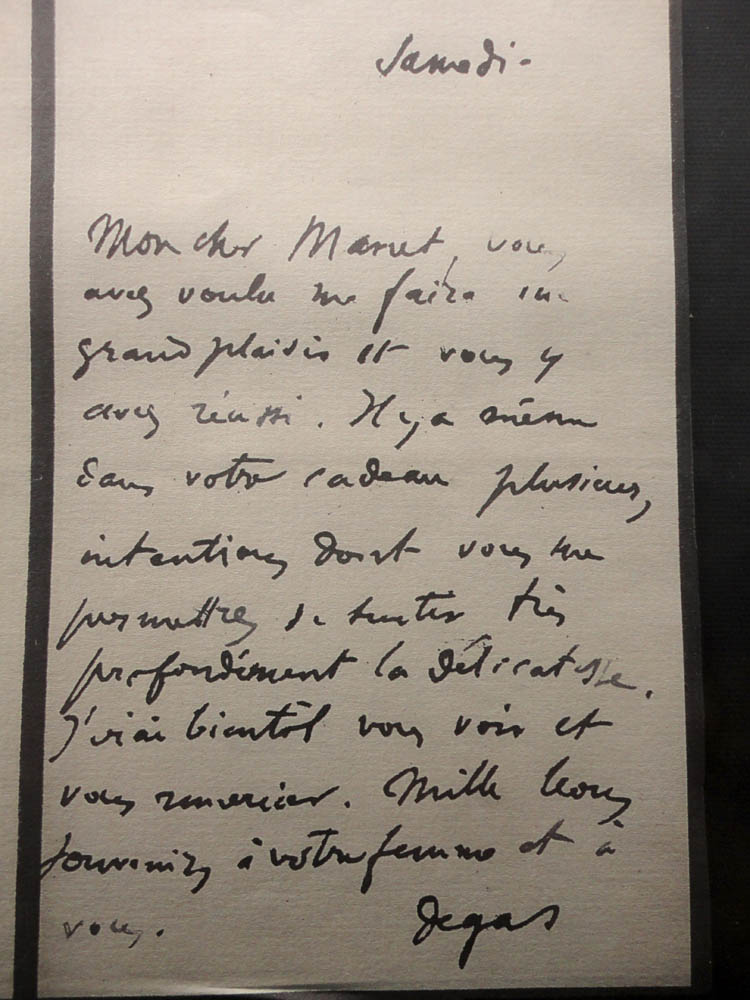 Samedi -
Mon cher Manet, vous
avez voulu me faire un
grand plaisir et vous y
avez réussi. Il y a même
dans votre cadeau plusieurs
intentions dont vous me
permettrez de sentir très
profondément la délicatesse.
J'irai bientôt vous voir et
vous remercier. Mille bons
souvenirs à votre femme et à
vous.
Degas